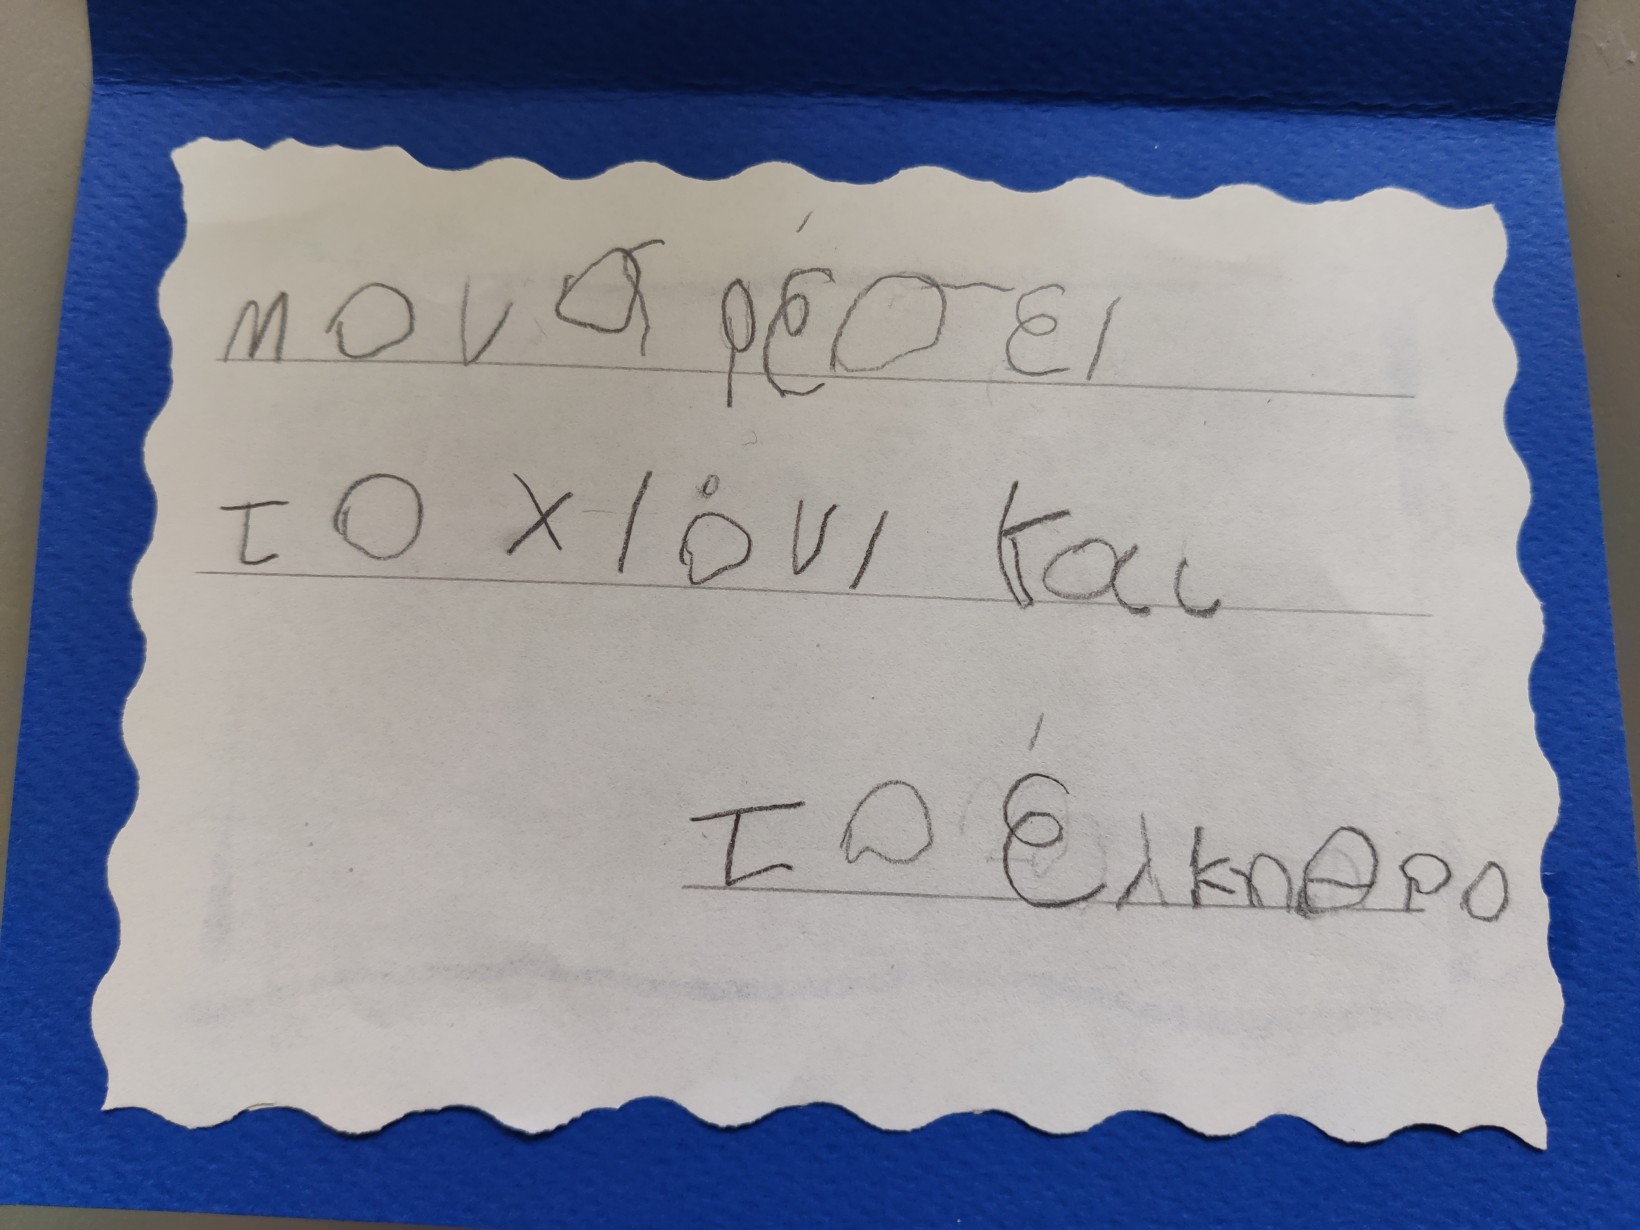 μου αρέσει
το χιόνι και
το έλκηθρο